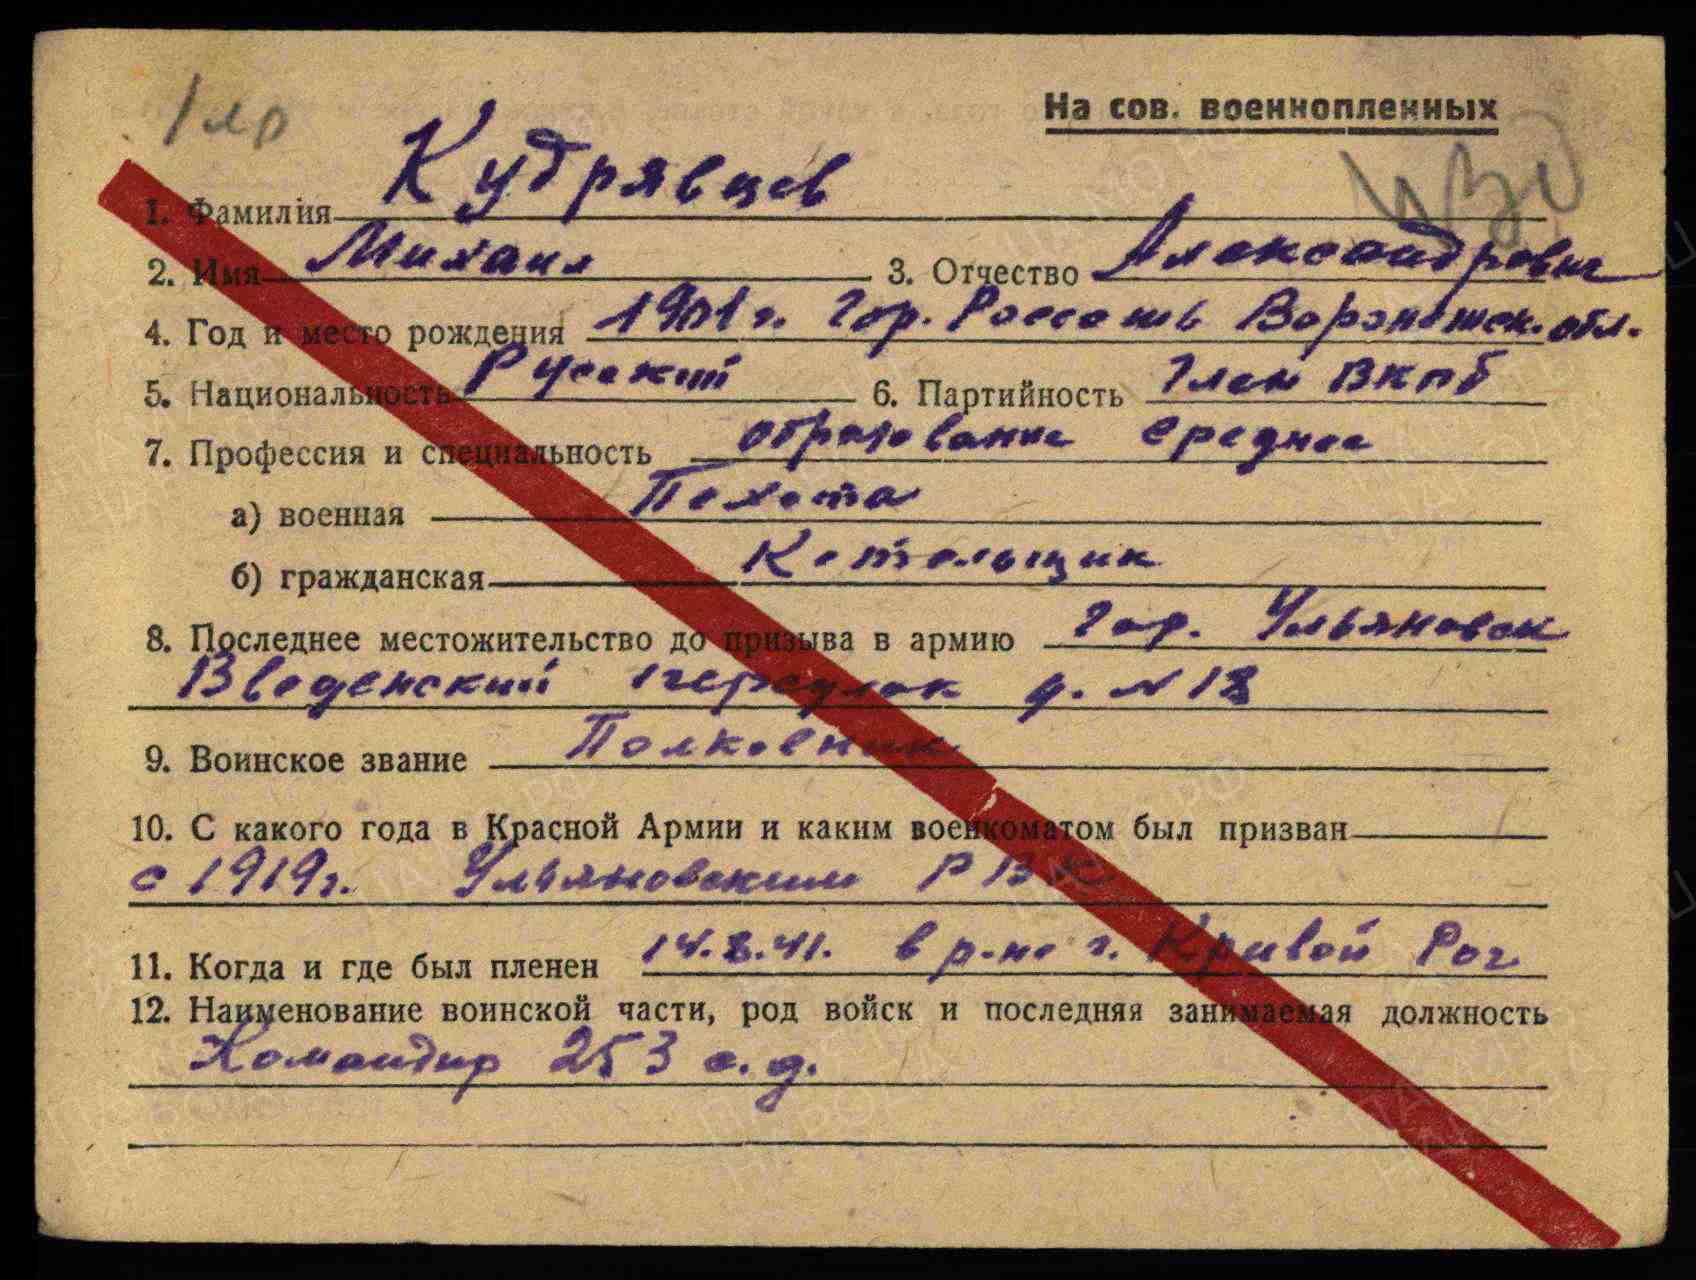 На сов. военнопленных
1. Фамилия Кудрявцев
2. Имя Михаил 3. Отчество Александрович
4. Год и место рождения 1901 г. Гор. Россошь Воронежск. обл.
5. Национальность Русский 6. Партийность Член ВКПб
7. Профессия и специальность образование среднее
а) военная Пехота
б) гражданская Котельщик
8. Последнее местожительство до призыва в армию гор. Ульяновск
Введенский переулок д. №
9. Воинское звание Полковник
10. С какого года в Красной Армии и каким военкоматом был призван
с 1919 г. Ульяновским РВК
11. Когда и где был пленен 14.8.41. в р-не г. Кривой Рог
12. Наименование воинской части, род войск и последняя занимаемая должность
Командир 253 с. д.